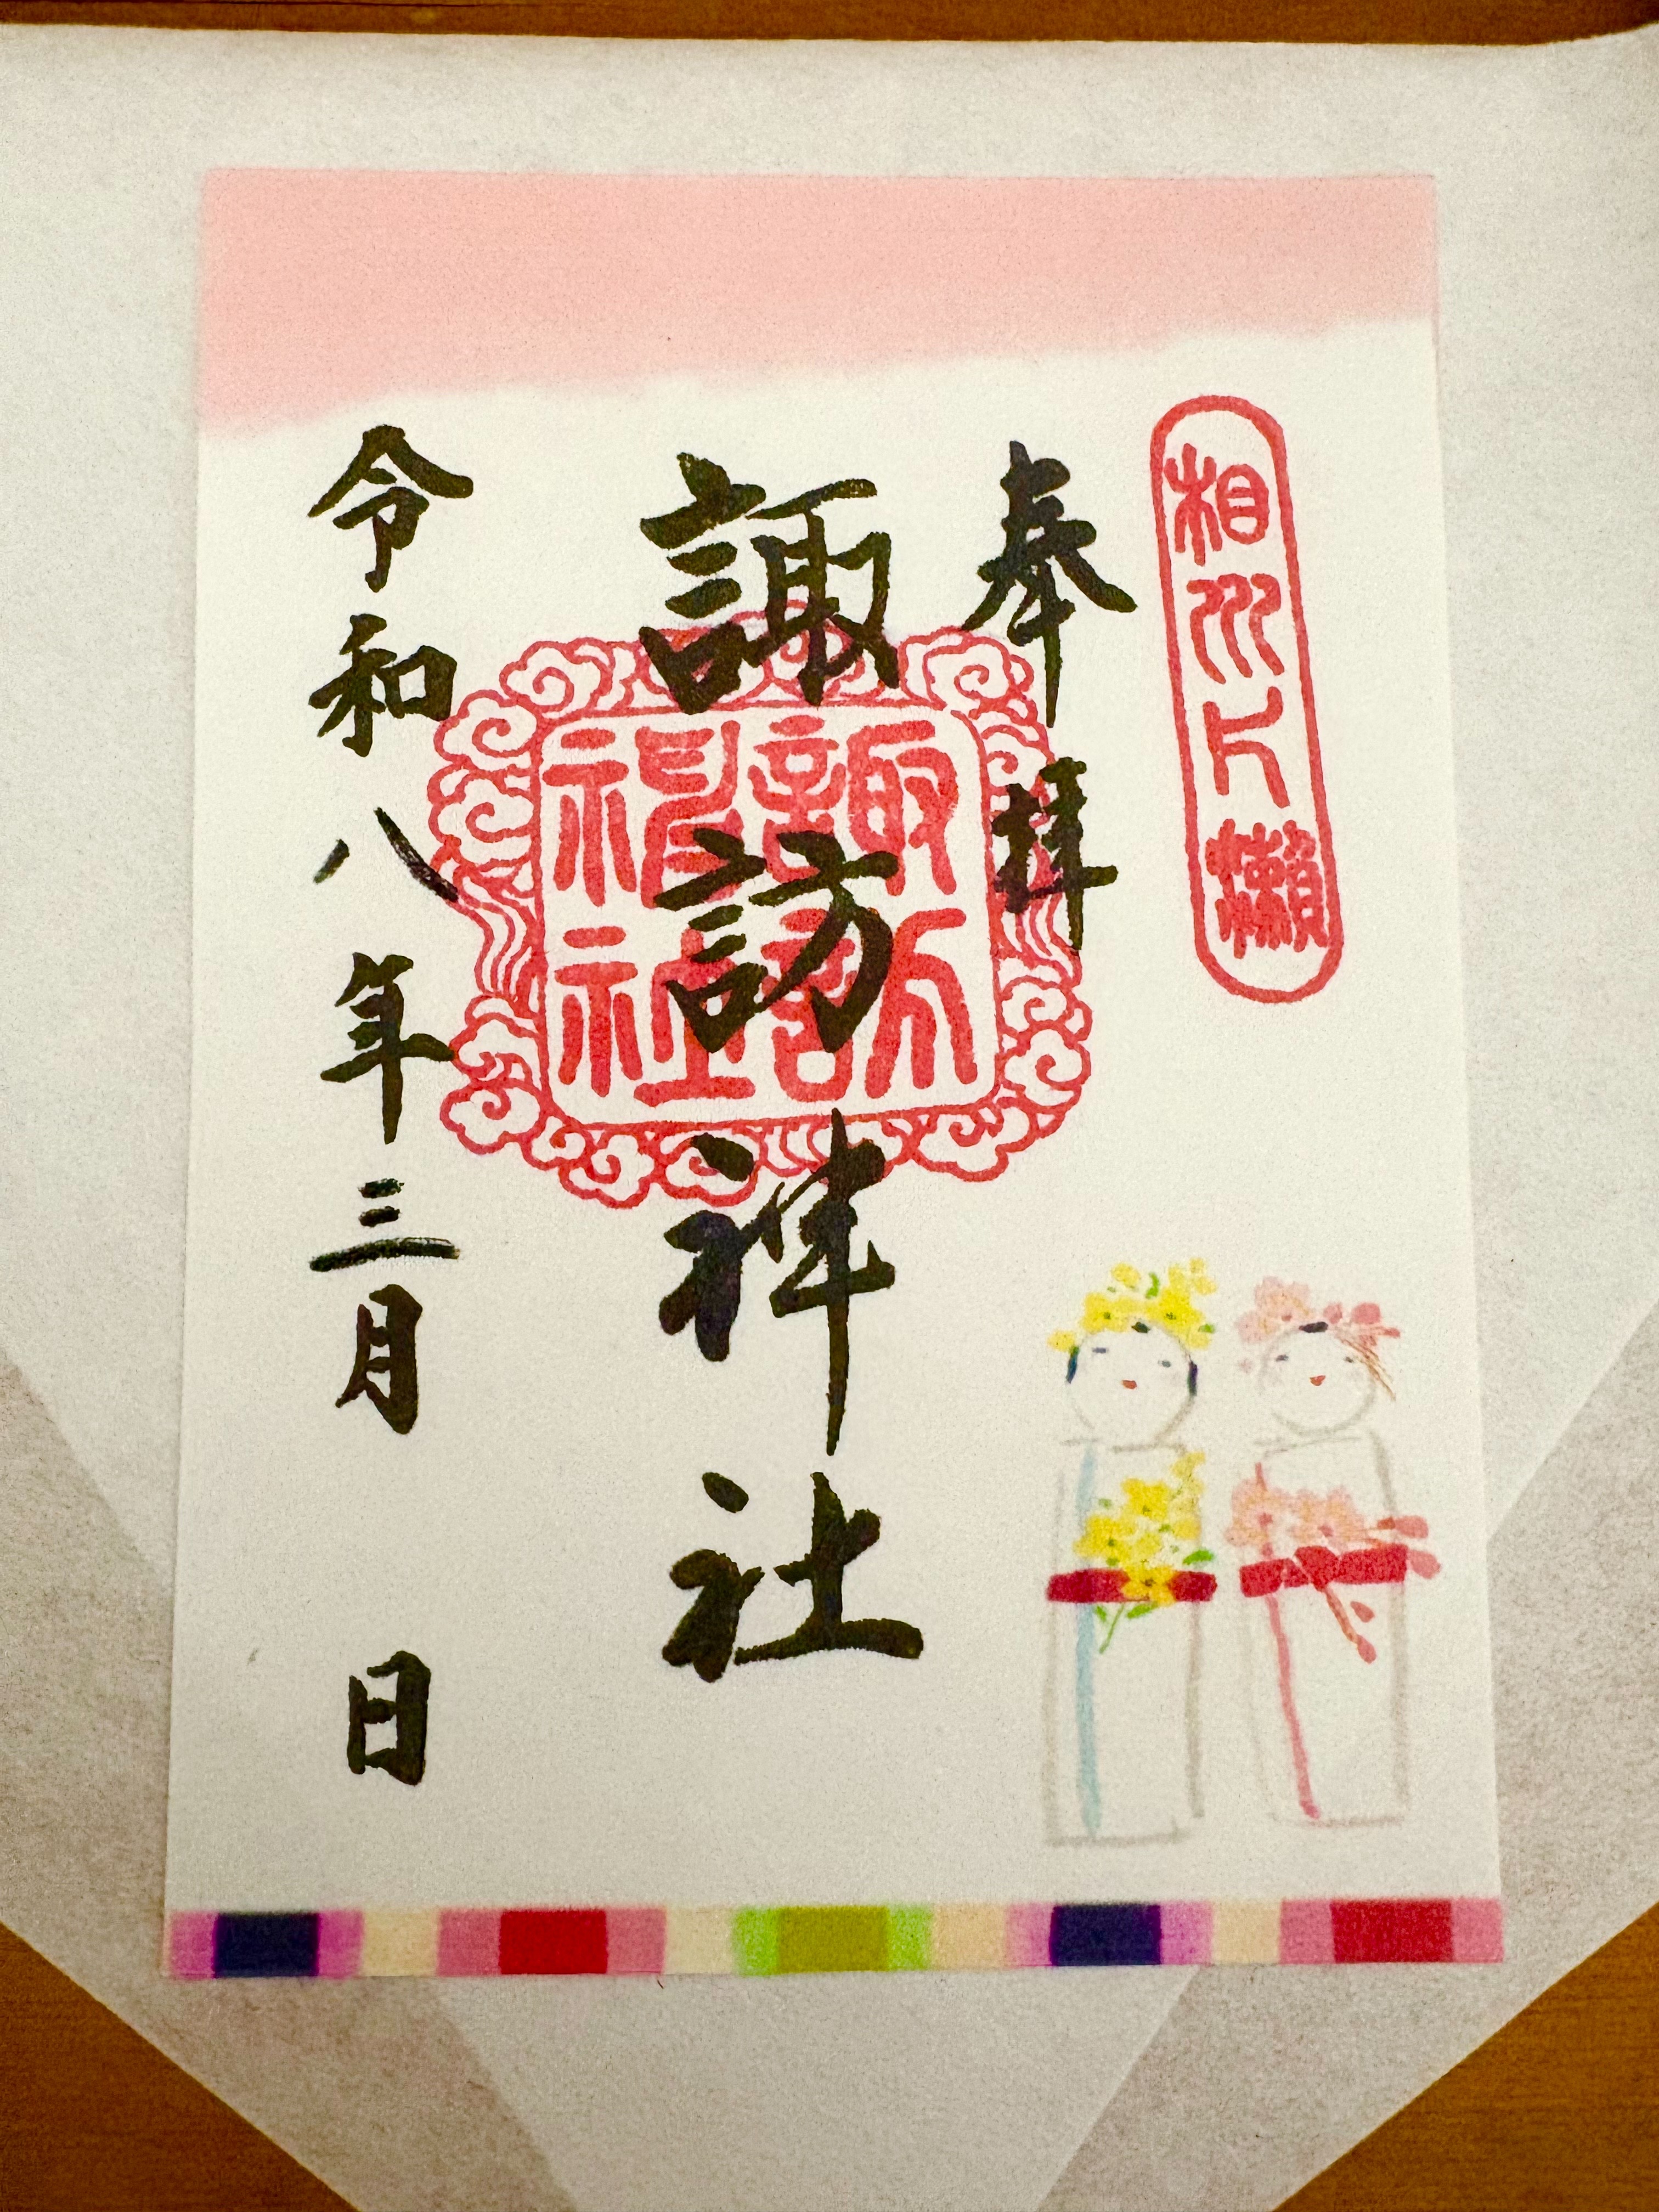 相州片瀬
奉拝
諏訪神社
諏訪
神社
令和八年三月 日